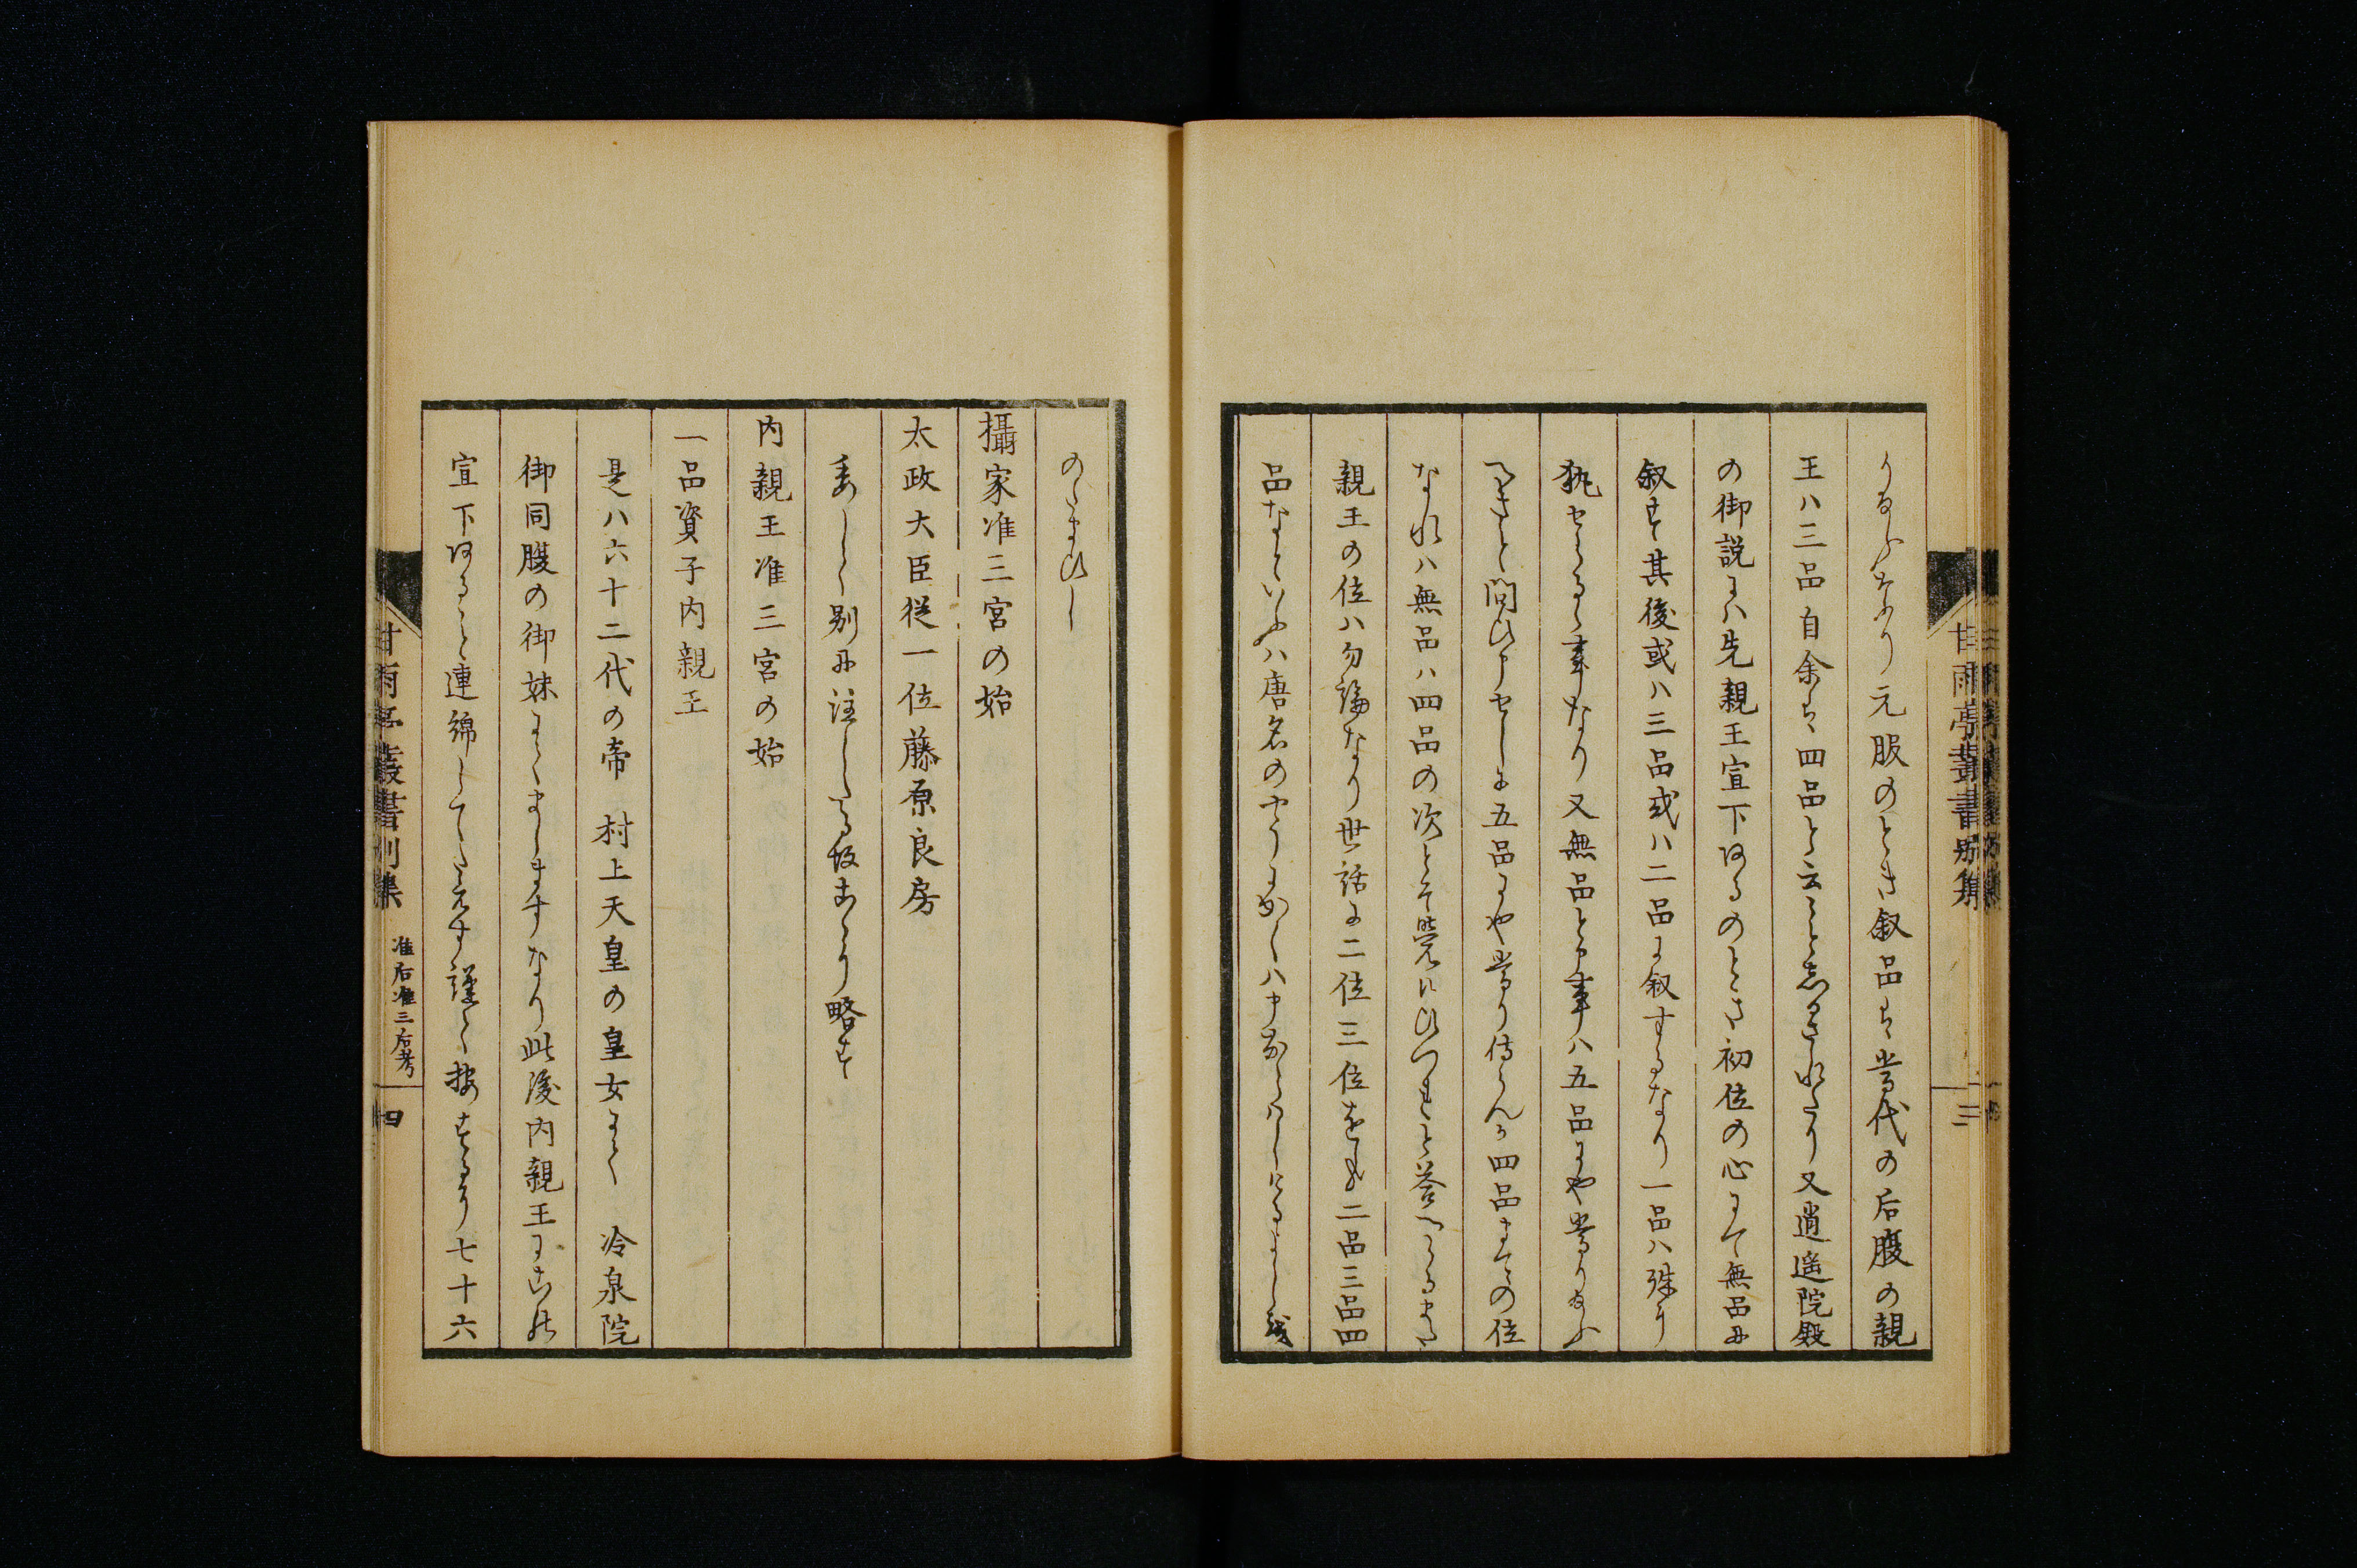 うるふなり元服のとき叙品は当代の后腹の親
王ハ三品自余は四品と云こと志るされたり又逍遥院殿
の御説にハ先親王宣下あるのとき初位の心にて無品に
叙す其後或ハ三品或ハ二品に叙するなり一品ハ殊に
執せらるゝ事なり又無品と申事ハ五品にや当り給ふ
へきと問ひ申せしに五品にや当り侍らんか四品まての位
なれハ無品ハ四品の次とそ覚えひつれと答へらるまた
親王の位ハ勿論なり世話に二位三位をも二品三品四
品なといふハ唐名のやうに
のたまひし
攝家准三宮の始
太政大臣従一位藤原良房
委しく別に注したる故こゝに略す
内親王准三宮の始
一品資子内親王
是ハ六十二代の帝 村上天皇の皇女にて 冷泉院
御同腹の御妹にてましますなり此後内親王にこの
宣下あること連綿してたえす謹て按するに七十六
甘雨亭叢書別集
三
甘雨亭叢書別集 准后准三后考 四